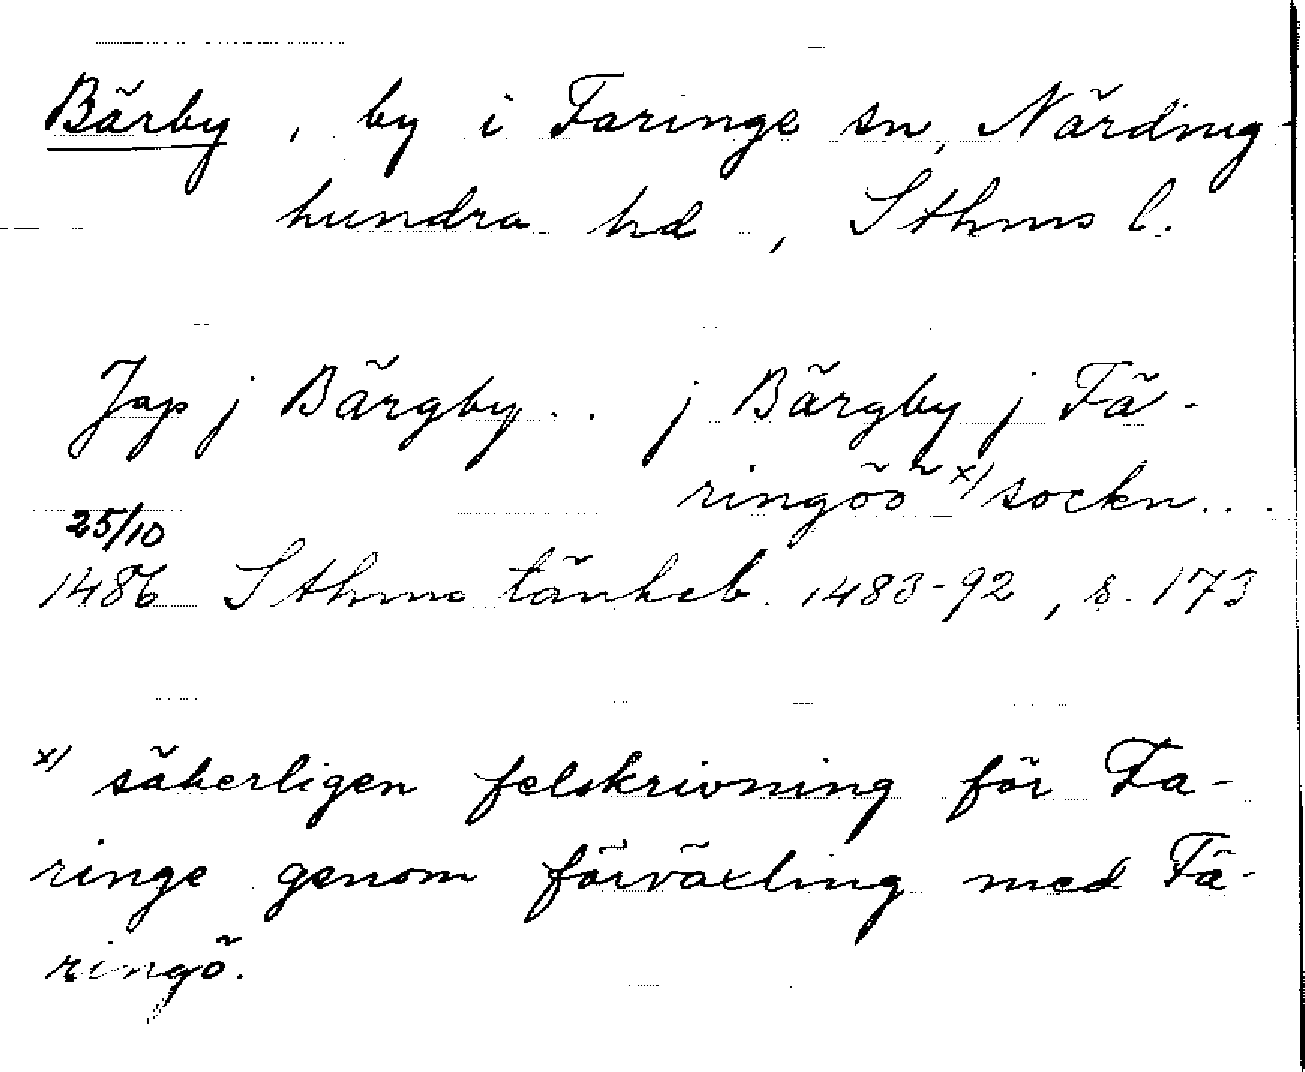 Bärby, by i Faringe sn, Närding-
hundra hd, Sthms l.
Jap j Bärgby .. j Bärgby j Fä-
ringöö x) sockn...
25/10
1486 Sthms tänkeb. 1483-92, s. 173
x) säkerligen felskrivning för Fa-
ringe genom förväxling med Fä-
ringö.